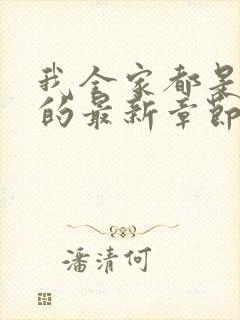 我全家都是
的最新章节
潘清何